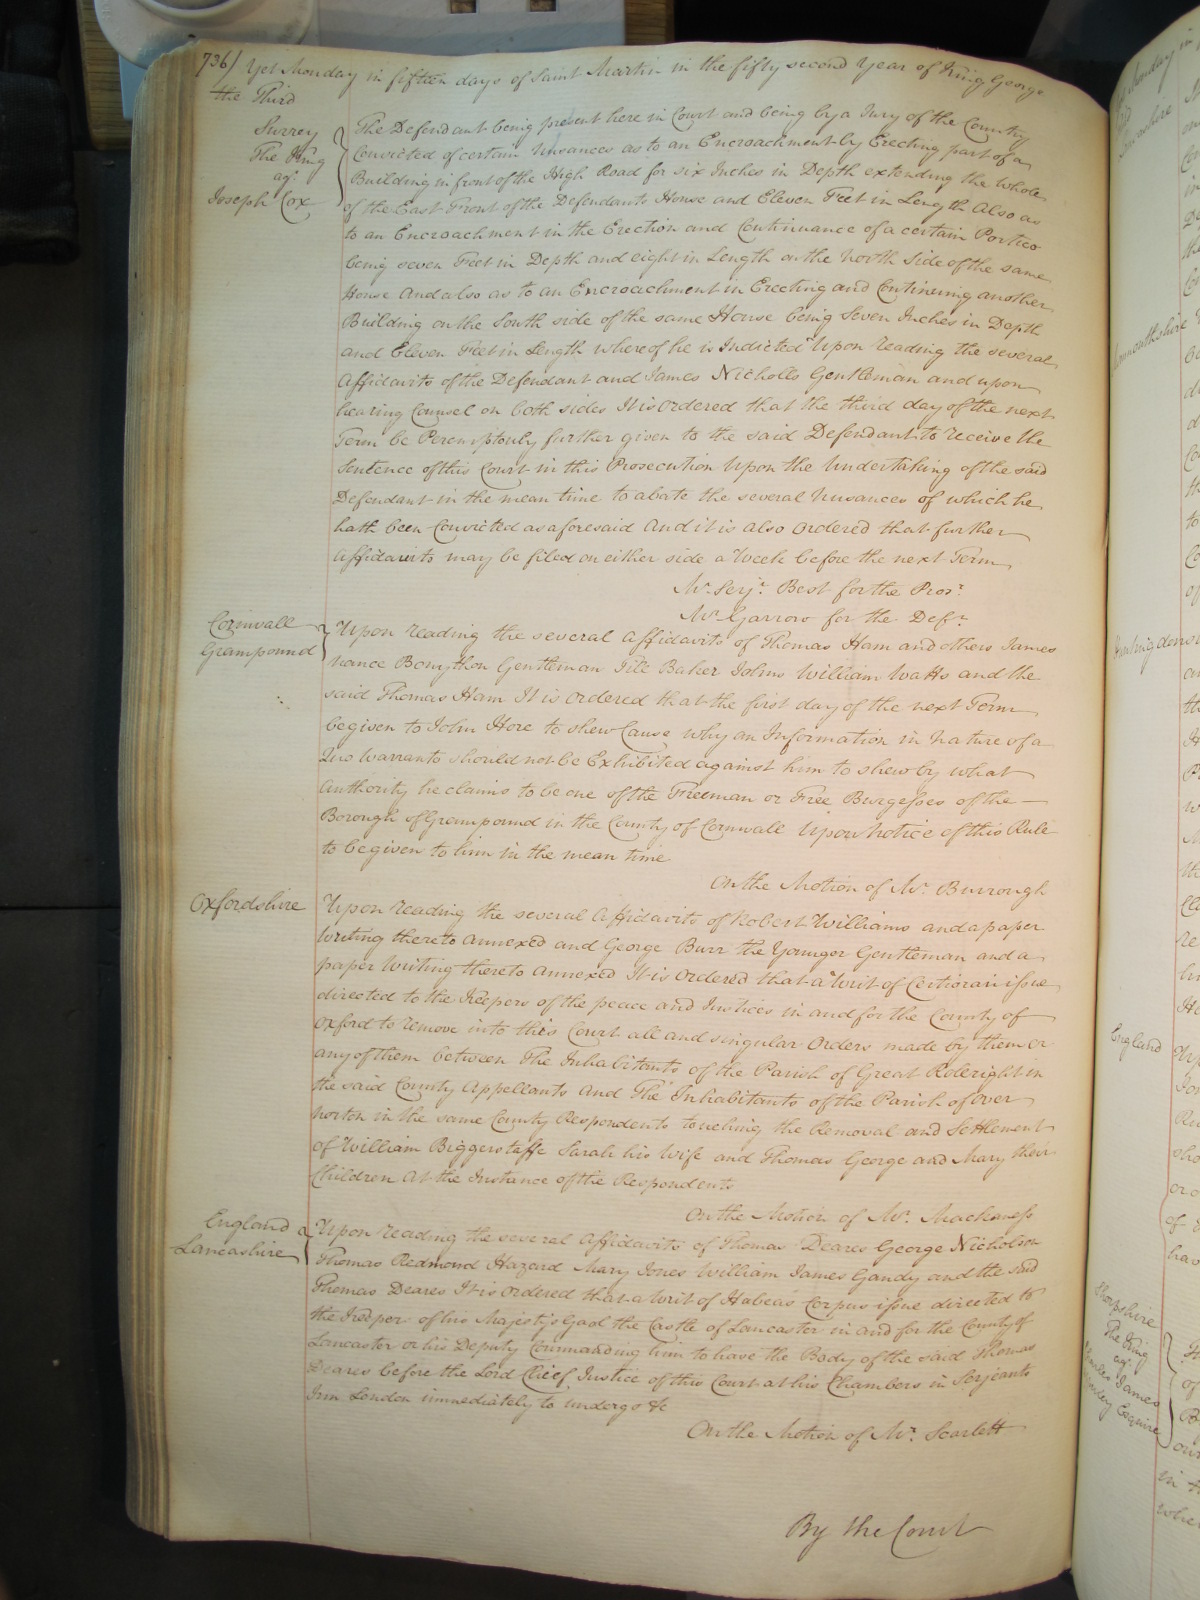 736) Yet Monday in fifteen days of Saint Martin in the fifty second Year of King George
the Third
Surrey
The King
agt.
Joseph Cox
The Defendant being present here in Court and being by a Jury of the Country
Convicted of certain Nusances as to an Encroachment by Erecting part of a
Building in front of the High Road for six Inches in Depth extending the whole
of the East Front of the Defendants House and Eleven Feet in Length Also as
to an Encroachment in the Erection and Continuance of a certain Portico
being seven Feet in Depth and eight in Length on the North Side of the same
House And also as to an Encroachment in Erecting and Continuing another
Building on the South side of the same House being Seven Inches in Depth
and Eleven Feet in Length whereof he is Indicted Upon reading the several
Affidavits of the Defendant and James Nicholls Gentleman and upon
hearing Counsel on both sides It is Ordered that the third day of the next
Term be Peremptorily further given to the said Defendant to receive the
Sentence of this Court in this Prosecution Upon the Undertaking of the said
Defendant in the mean time to abate the several Nusances of which he
hath been Convicted as aforesaid And it is also Ordered that further
Affidavits may be filed on either side a Week before the next Term
Mr. Serjt. Best for the Prosr.
Mr. Garrow for the Deft.
Cornwall
Grampound
Upon reading the several Affidavits of Thomas Ham and others James
Nance Bonython Gentleman Till Baker Johns William Watts and the
said Thomas Ham It is Ordered that the first day of the next Term
be given to John Hore to shew Cause why an Information in Nature of a
Quo Warranto should not be Exhibited against him to shew by what
Authority he claims to be one of the Freeman or Free Burgesses of the
Borough of Grampound in the County of Cornwall Upon Notice of this Rule
to be given to him in the mean time
On the Motion of Mr. Burrough
Oxfordshire
Upon reading the several Affidavits of Robert Williams and a paper
Writing thereto Annexed and George Burr the Younger Gentleman and a
paper Writing thereto Annexed It is Ordered that a Writ of Certiorari issue
directed to the Keepers of the peace and Justices in and for the County of
Oxford to remove into this Court all and singular Orders made by them or
any of them between The Inhabitants of the Parish of Great Roleright in
the said County Appellants And The Inhabitants of the Parish of Over
Norton in the same County Respondents touching the Removal and Settlement
of William Biggerstaffe Sarah his Wife and Thomas George and Mary their
Children At the Instance of the Respondents
On the Motion of Mr. Mackness
England
Lancashire
Upon reading the several Affidavits of Thomas Deares George Nicholson
Thomas Redmond Hazard Mary Jones William James Gandy and the said
Thomas Deares It is Ordered that a Writ of Habeas Corpus issue directed to
the Keeper of his Majestys Gaol the Castle of Lancaster in and for the County of
Lancaster or his Deputy Commanding him to have the Body of the said Thomas
Deares before the Lord Chief Justice of this Court at his Chambers in Serjeants
Inn London immediately to undergo &c
On the Motion of Mr. Scarlett
By the Court
England
Shropshire
The King
agt.
James
Esquire